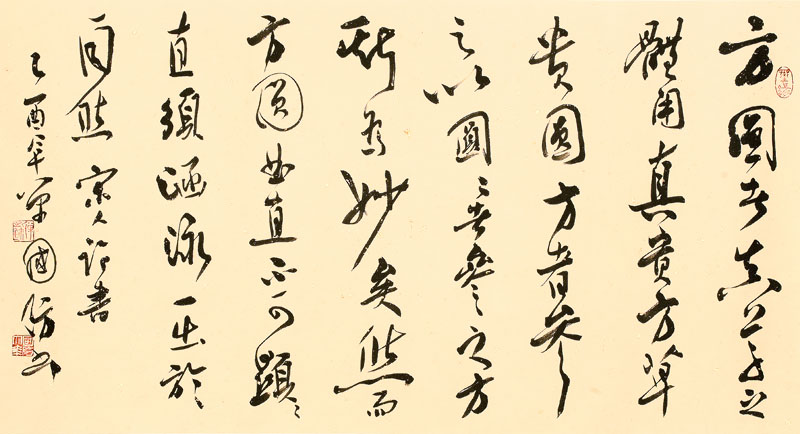 方圓者真草之
體用真貴方草
貴圓方者參
之以圓〻者參之以方
斯為妙矣然而
方圓曲直不可顯〻
直須涵泳一出於
自然 宋人論書
乙酉年單國防書